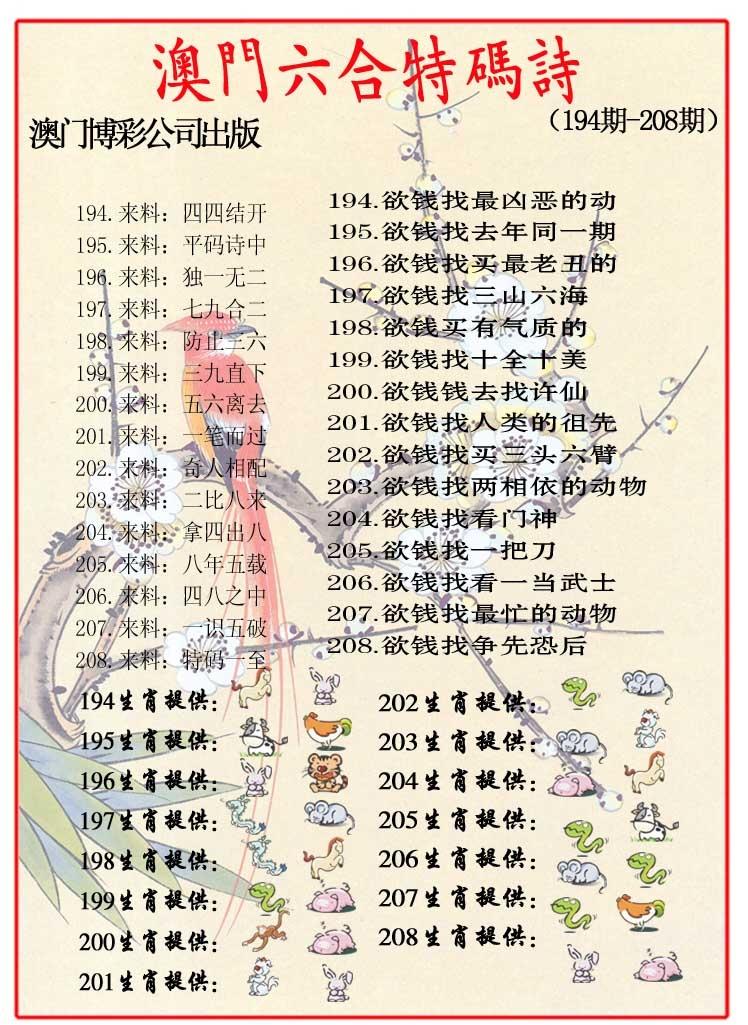 澳門六合特碼詩
澳门博彩公司出版
（194期-208期）
194.来料：四四结开
195.来料：平码诗中
196.来料：独一无二
197.来料：七九合二
198.来料：防止三六
199.来料：三九直下
200.来料：五六离去
201.来料：一笔而过
202.来料：奇人相配
203.来料：二比八来
204.来料：拿四出八
205.来料：八年五载
206.来料：四八之中
207.来料：一识五破
208.来料：特码一至
194.欲钱找最凶恶的动
195.欲钱找去年同一期
196.欲钱找买最老丑的
197.欲钱找三山六海
198.欲钱买有气质的
199.欲钱找十全十美
200.欲钱钱去找许仙
201.欲钱找人类的祖先
202.欲钱找买三头六臂
203.欲钱找两相依的动物
204.欲钱找看门神
205.欲钱找一把刀
206.欲钱找看一当武士
207.欲钱找最忙的动物
208.欲钱找争先恐后
194生肖提供：
195生肖提供：
196生肖提供：
197生肖提供：
198生肖提供：
199生肖提供：
200生肖提供：
201生肖提供：
202生肖提供：
203生肖提供：
204生肖提供：
205生肖提供：
206生肖提供：
207生肖提供：
208生肖提供：